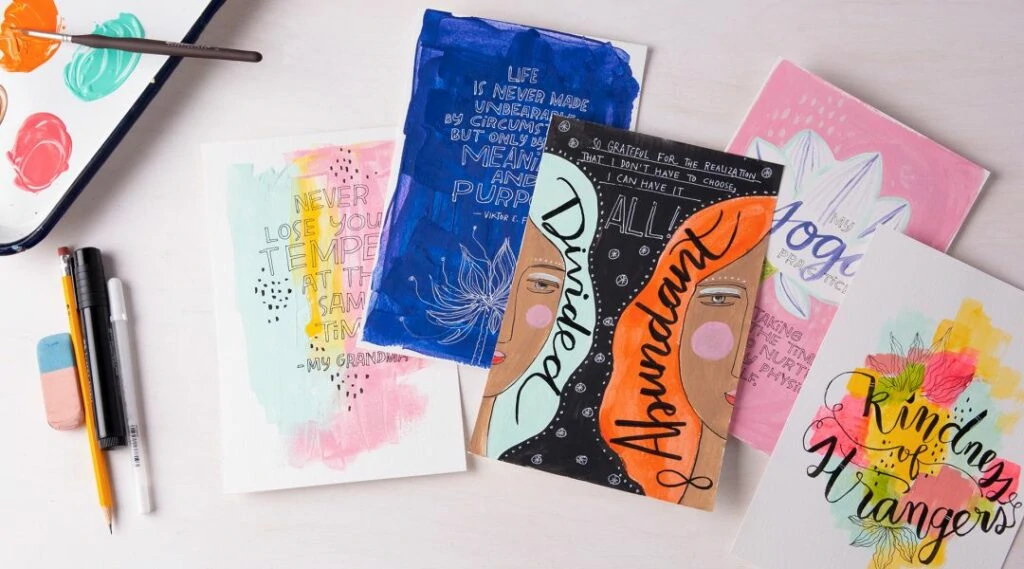 NEVER
LOSE YOU
TEMPE
AT TH
SAM
TIM
-MY GRANDMA
LIFE
IS NEVER MADE
UNBEARABLE
BY CIRCUMST
BUT ONLY BY
MEANIN
AND
PURPO
- VIKTOR E. F
SO GRATEFUL FOR THE REALIZATION
THAT I DON'T HAVE TO CHOOSE,
I CAN HAVE IT
ALL!
Divided
Abundant
MY
Yoga
PRACTICE
TAKING
THE TIME
NURT
PHYSI
Kindness
of
Strangers